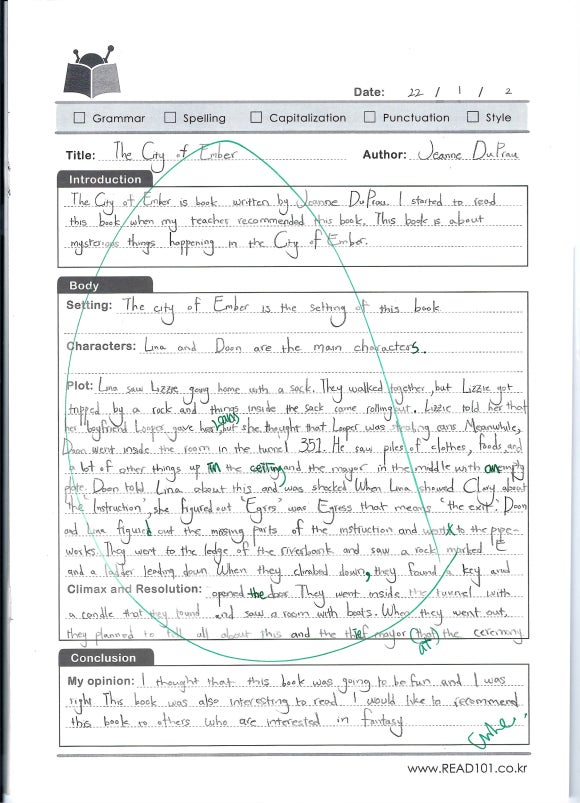 Date: 22 / 1 / 2
Grammar Spelling Capitalization Punctuation Style
Title: The City of Ember Author: Jeanne DuPrau
Introduction
The City of Ember is book written by Jeanne DuPrau. I started to read
this book when my teacher recommended this book. This book is about
mysterious things happening in the City of Ember.
Body
Setting: The city of Ember is the setting of this book
Characters: Lina and Doon are the main characters.
Plot: Lina saw Lizzie going home with a sack. They walked together, but Lizzie got
tripped by a rock and things inside the sack came rolling out. Lizzie told her that
her boyfriend Looper gave her cans, but she thought that Looper was stealing cans. Meanwhile,
Doon went inside the room in the tunnel 351. He saw piles of clothes, foods, and
a lot of other things up in the setting and the mayor in the middle with an empty
plate. Doon told Lina about this and was shocked When Lina showed Clary about
the "Instruction", she figured out "Egres" was Egress that means "the exit". Doon
and Lina figured out the missing parts of the instruction and went to the pipe-
works. They went to the ledge of the riverbank and saw a rock marked E
and a ladder leading down When they climbed down, they found a key and
Climax and Resolution: opened the door. They went inside the tunnel with
a candle that they found and saw a room with boats. When they went out,
they planned to tell all about this and the thief mayor (that) the ceremony
at
Conclusion
My opinion: I thought that this book was going to be fun and I was
right This book was also interesting to read I would like to recommend
this book to others who are interested in fantasy
www.READ101.co.kr